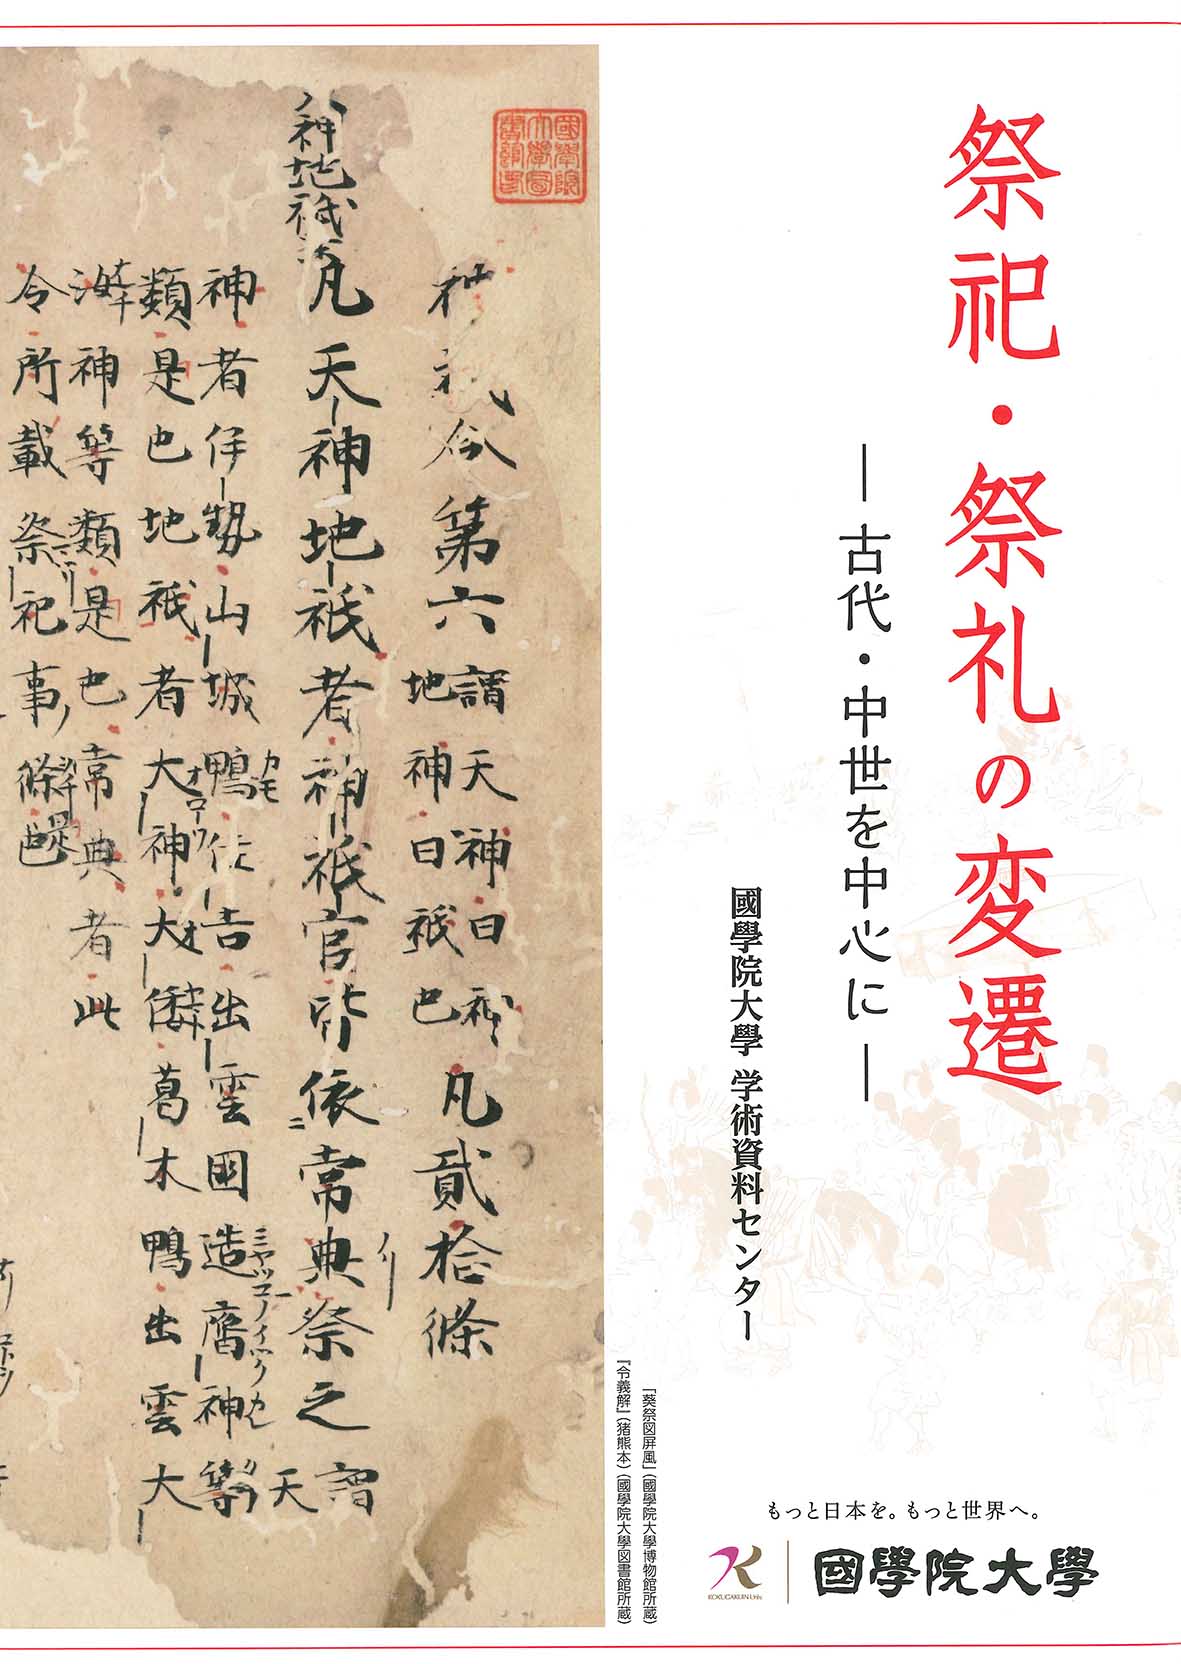 祭祀・祭礼の変遷
― 古代・中世を中心に ―
國學院大學 学術資料センター
『葵祭図屏風』(國學院大學博物館所蔵)
『令義解』(猪熊本)(國學院大學図書館所蔵)
もっと日本を。もっと世界へ。
KOKUGAKUIN Univ.
國學院大學
神祇令第六
謂天神曰神
地神曰祇也
凡貳拾條
凡天神地祇者神祇官皆依常典祭之
謂天
神者伊勢山城鴨住吉出雲國造齋神等
カモ
ミヤツコノイツクカミ
類是也地祇者大神大倭葛木鴨出雲大
海神等類是也常典者此
令所載祭祀事條是也